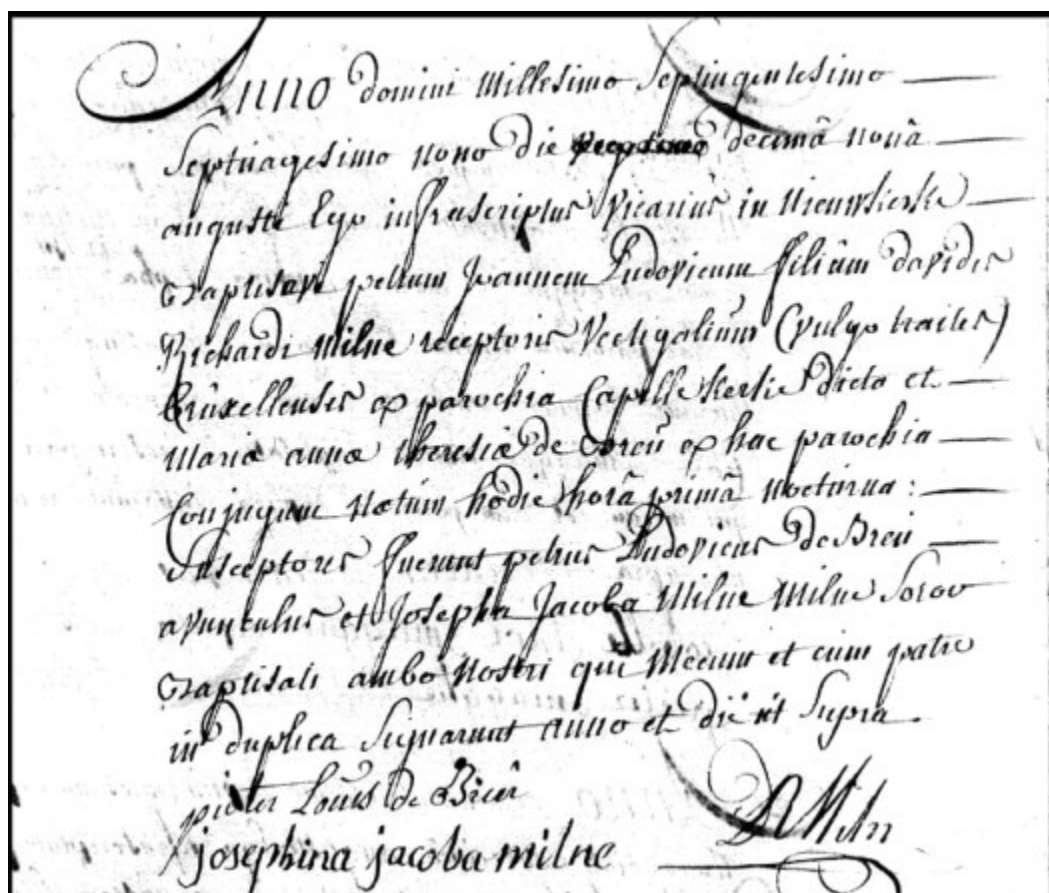 Anno domini Millesimo Septingentesimo
Septuagesimo nono die decimâ nonâ
augusti Ego infrascriptus Vicarius in Nieuwkerke
Baptisavi petrum Joannem Ludovicum filium davidis
Richardi Milne receptoris Vectigalium (vulgo traites)
Bruxellensis ex parochia Capellekerke dicto et
Maria anna theresia de Breu ex hac parochia
Conjugum natum hodie horâ primâ nocturna:
Susceptores fuerunt petrus Ludovicus de Breu
avunculus et Josepha Jacoba Milne Milne Soror
Baptisati ambo Nostri qui Mecum et cum patre
in duplica Signarunt anno et die ut Supra.
pieter Louis de Breu
josephina jacoba milne